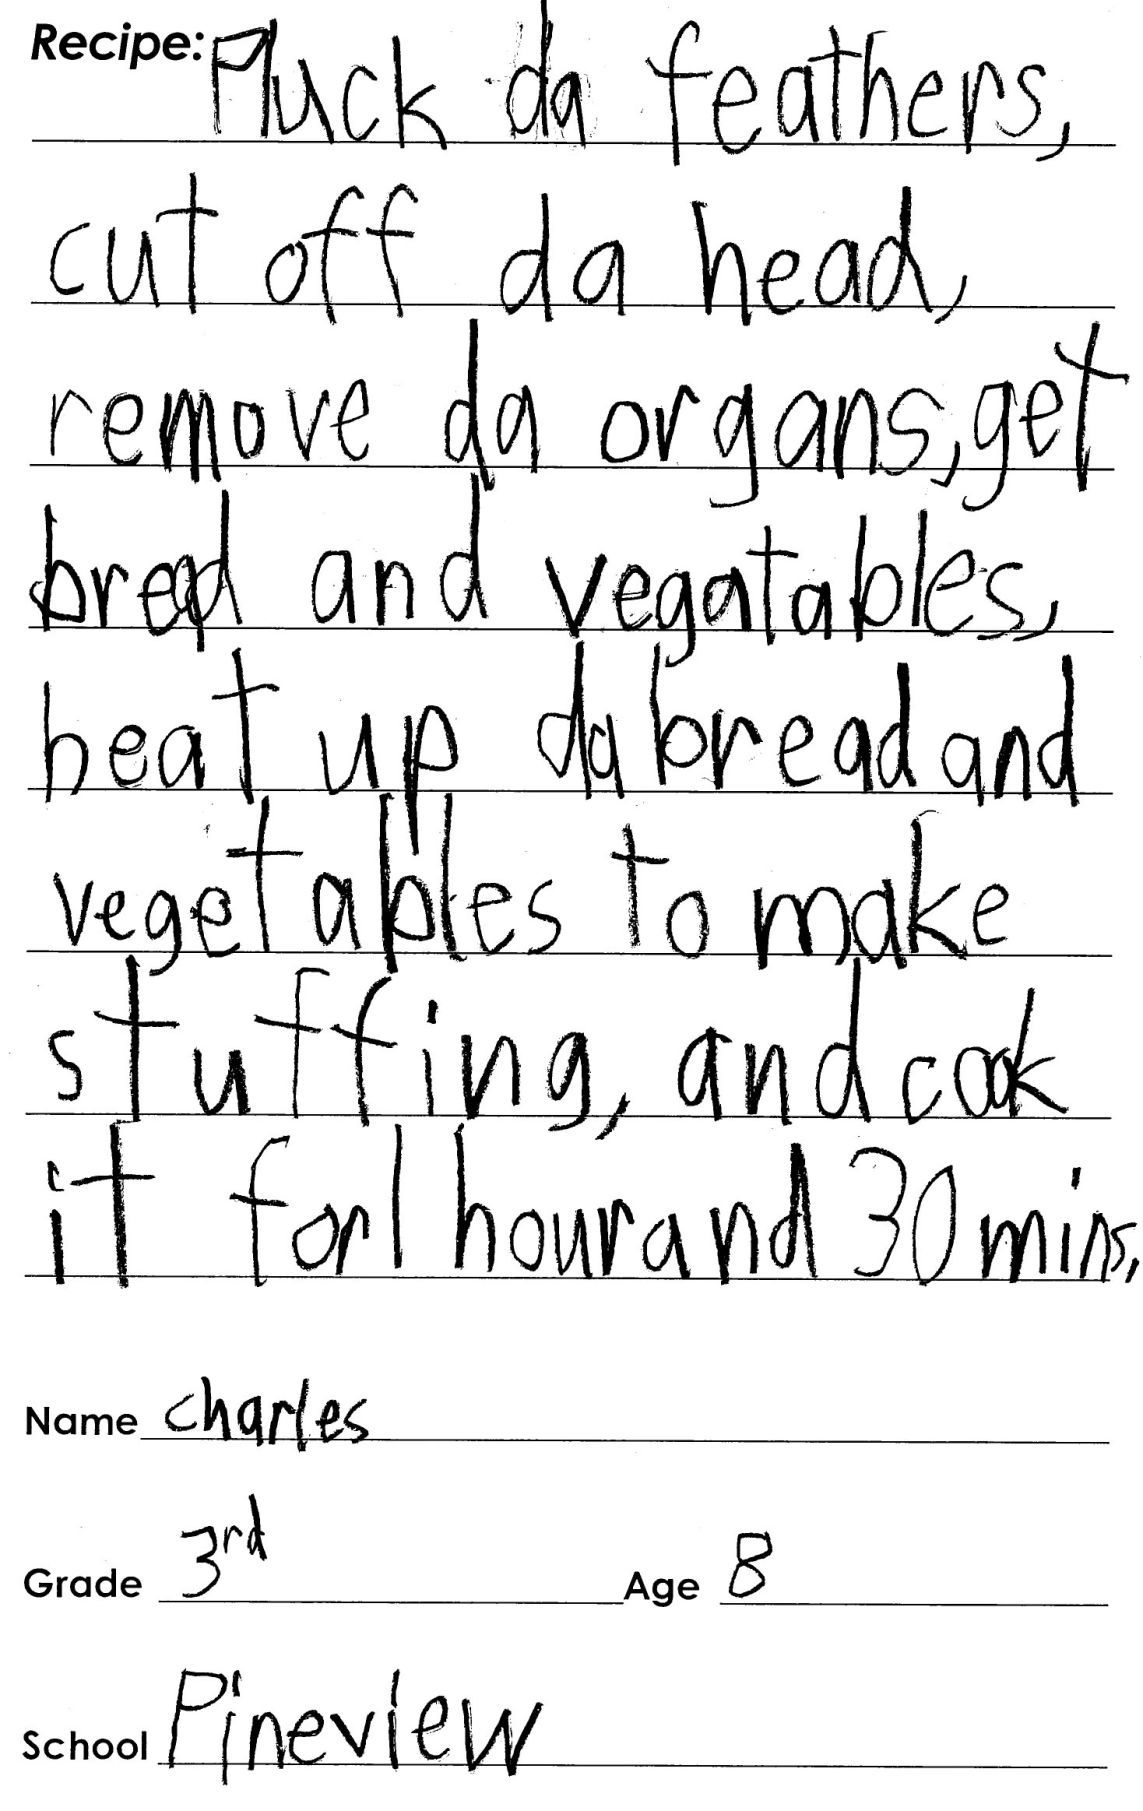 Recipe: Pluck da feathers,
cut off da head,
remove da organs, get
bread and vegatables,
heat up da bread and
vegetables to make
stuffing, and cook
it for 1 hour and 30 mins.
Name charles
Grade 3rd Age 8
School Pineview